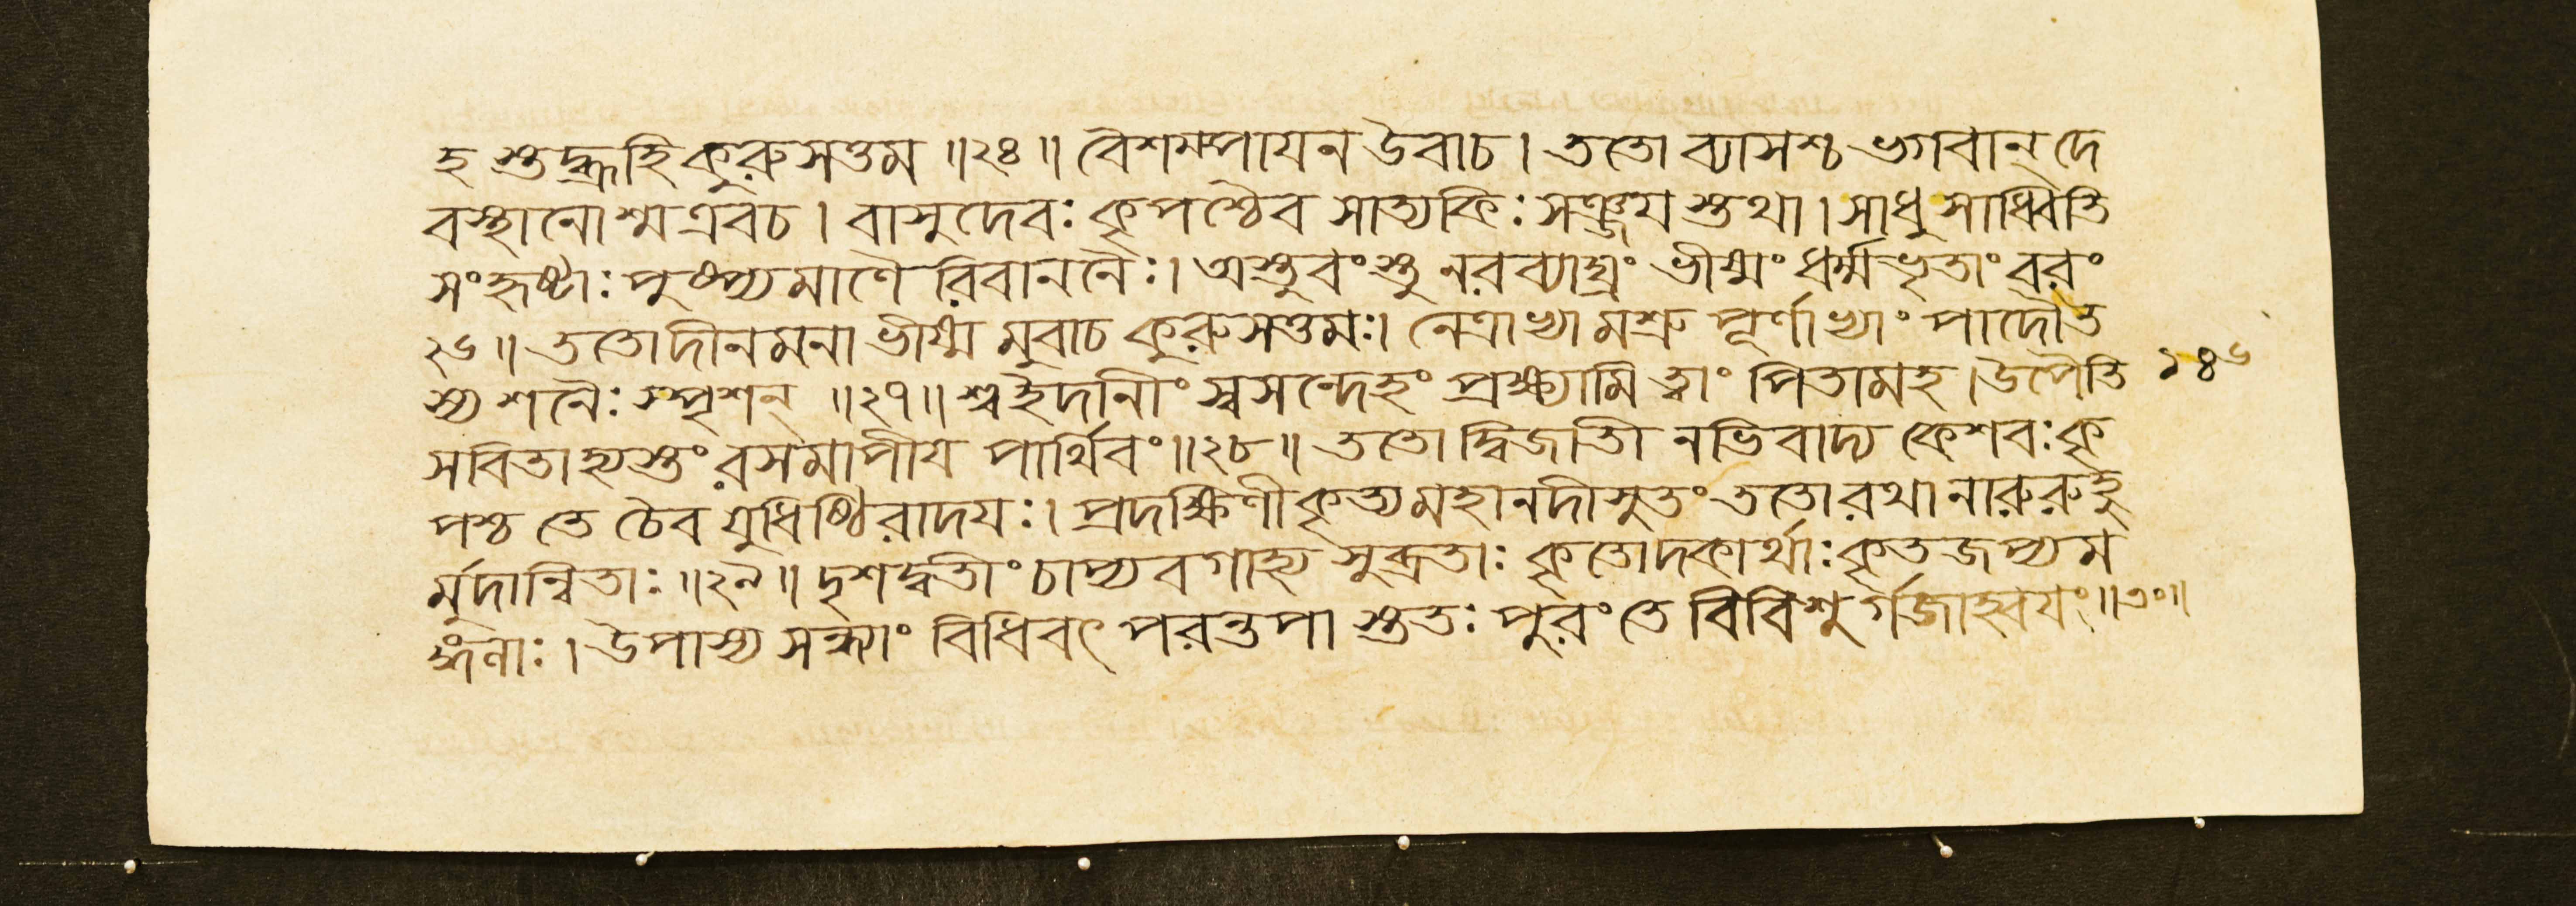 হ শুদ্ধ্রূহি কুরুসত্তম ॥২৪॥ বৈশম্পায়ন উবাচ। ততো ব্যাসশ্চ ভগবান্ দে
বস্থানোশ্ম এবচ। বাসুদেবঃ কৃপশ্চৈব সাত্যকিঃ সঞ্জয়স্তথা। সাধু সাধ্বিতি
সংহৃষ্টাঃ পুষ্প্যমাণৈ রিবাননৈঃ। অস্তুবংস্তু নরব্যাঘ্রং ভীষ্মং ধর্ম্মভৃতাং বরং
২৬॥ ততোদীনমনা ভীষ্ম মুবাচ কুরুসত্তমঃ। নেত্রাভ্যামশ্রু পূর্ণাভ্যাং পাদৌত
স্য শনৈঃ স্পৃশন্ ॥২৭॥ শ্ব ইদানীং স্বসন্দেহং প্রক্ষ্যামি ত্বাং পিতামহ। উপৈতি ১৪৬
সবিতাহ্যস্তং রসমাপীয় পার্থিবং॥২৮॥ ততো দ্বিজাতী নভিবাদ্য কেশবঃ কৃ
পশ্চ তে চৈব যুধিষ্ঠিরাদয়ঃ। প্রদক্ষিণীকৃত্য মহানদীসুতং ততো রথা নারুরুহু
র্মুদান্বিতাঃ॥২৯॥ দৃশদ্বতীং চাপ্যবগাহ্য সুব্রতাঃ কৃতোদকার্থাঃ কৃতজপ্যম
ঙ্গনাঃ। উপাস্য সন্ধ্যাং বিধিবৎ পরন্তপা স্ততঃ পুরং তে বিবিশুর্গজাহ্বয়ং॥৩০॥